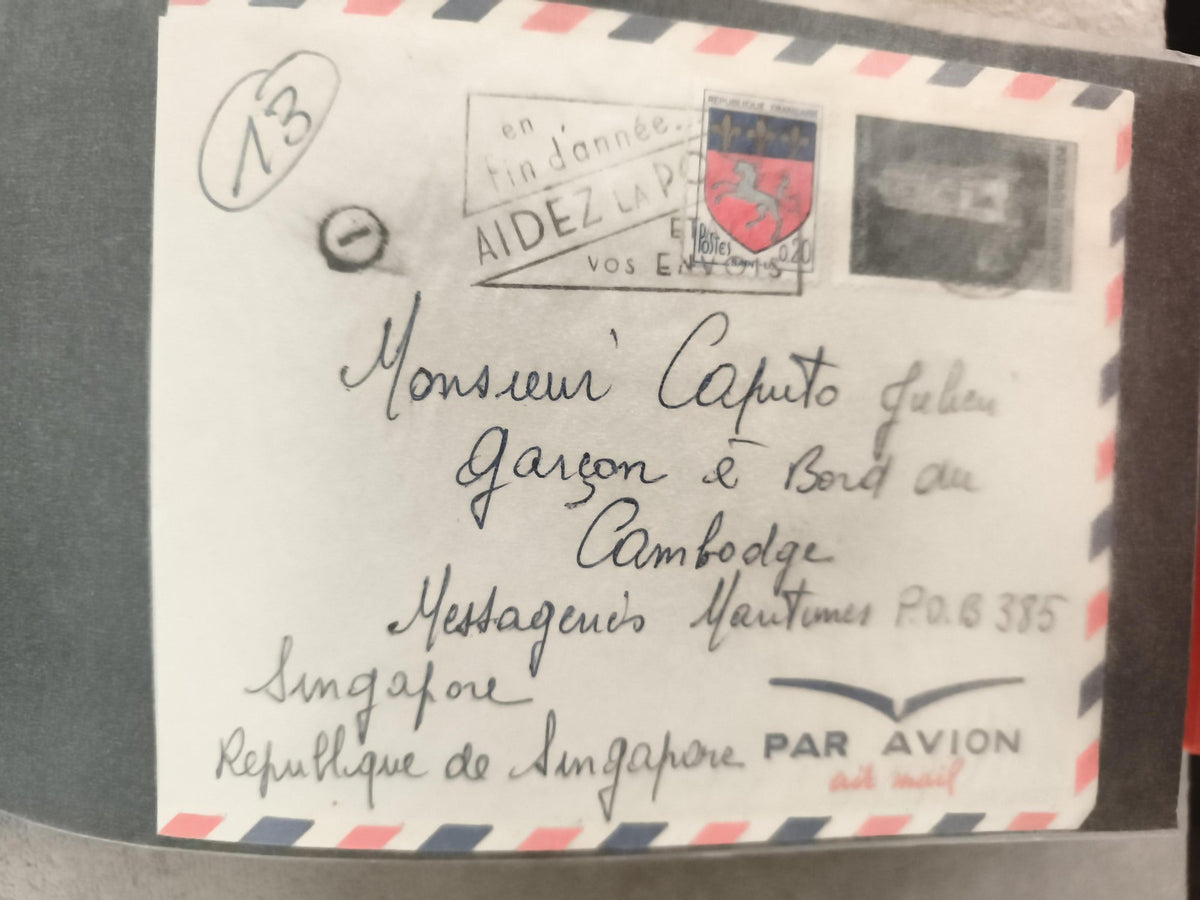 13
en
fin d'année...
AIDEZ LA PO
ET
VOS ENVOIS
REPUBLIQUE FRANCAISE
Postes
0,20
1
Monsieur Caputo Julien
garçon à Bord du
Cambodge
Messageries Maritimes P.O.B 385
Singapore
Republique de Singapore
PAR AVION
air mail